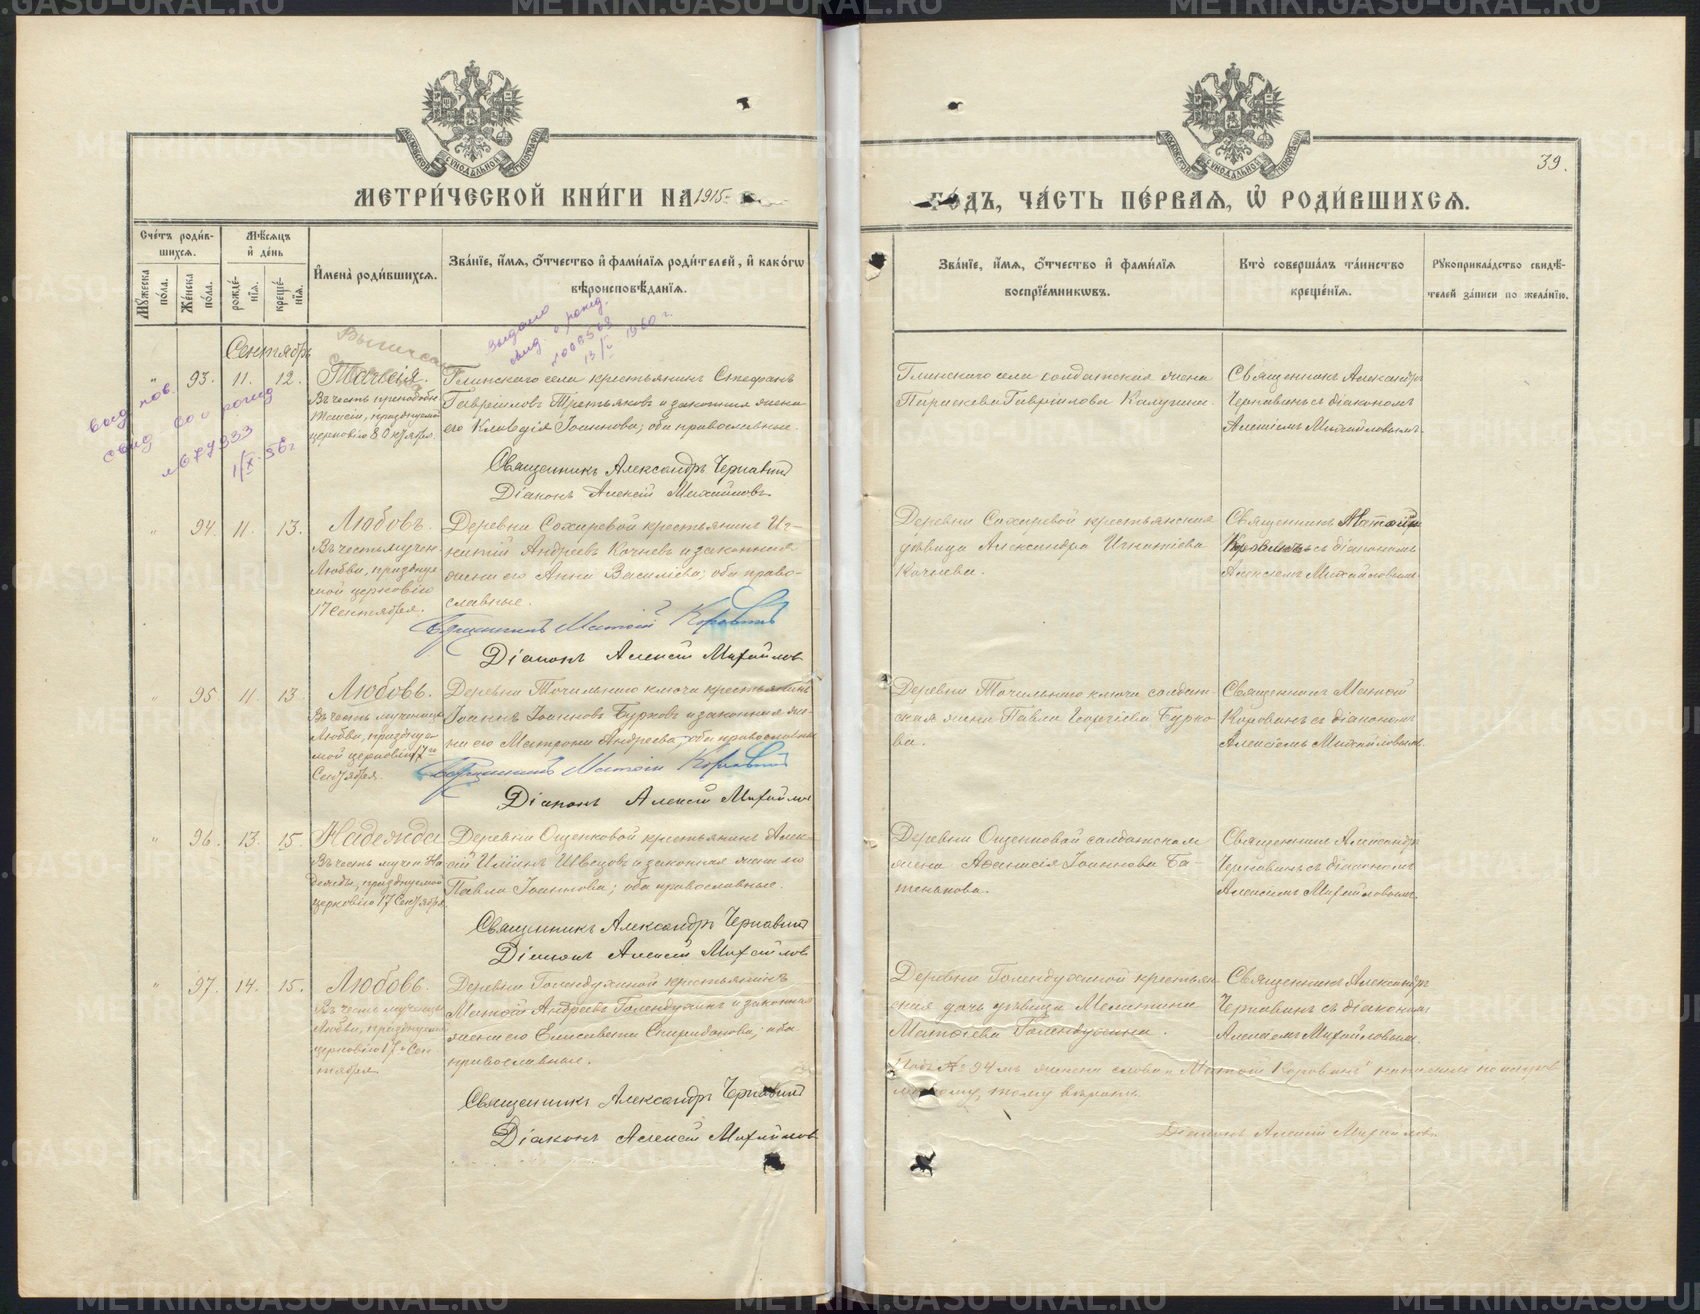 МЕТРИ́ЧЕСКОЙ КНИ́ГИ НА 1915
ГО́ДЪ, ЧА́СТЬ ПЕ́РВАЯ, Ѡ҆ РОДИ́ВШИХСЯ.
39.
Сче́тъ роди́в-
шихся.
Мѣ́сяцъ
и҆ де́нь
Му́жеска по́ла.
Же́нска по́ла.
рожде́-
нія.
креще́-
нія.
И҆мена̀ роди́вшихся.
Зва́ніе, и҆́мя, ѻ҆́тчество и҆ фами́лія роди́телей, и҆ како́гѡ
вѣроисповѣ́данія.
Зва́ніе, и҆́мя, ѻ҆́тчество и҆ фами́лія
воспріе́мникѡвъ.
Кто̀ соверша́лъ та́инство
креще́нія.
Рꙋкоприкла́дство свидѣ́-
телей за́писи по жела́нію.
Сентябрь
выдано
свид. о рожд.
13/V 1960 г.
выд. пов.
свид. о рожд
1/X-56 г
" 93. 11. 12.
Таисія.
Въ честь преподобн.
Таисіи, празднуемой
церковію 8 Октября.
Глинскаго села крестьянинъ Стефанъ
Гавріиловъ Третьяковъ и законная жена
его Клавдія Іоаннова; оба православные.
Священникъ Александръ Чернавинъ
Діаконъ Алексій Михайловъ.
Глинскаго села солдатская жена
Параскева Гавріилова Калугина.
Священникъ Александръ
Чернавинъ съ діакономъ
Алексіемъ Михайловымъ.
" 94. 11. 13.
Любовь.
Въ честь мучен.
Любви, празднуе-
мой церковію
17 Сентября.
Деревни Сохаревой крестьянинъ Иг-
натій Андреевъ Кочневъ и законная
жена его Анна Василіева; оба право-
славные.
Священникъ Матѳій Коровинъ
Діаконъ Алексій Михайлов
Деревни Сохаревой крестьянская
дѣвица Александра Игнатіева
Кочнева.
Священникъ Матѳій
Коровинъ съ діакономъ
Алексіемъ Михайловымъ.
" 95 11. 13.
Любовь.
Въ честь мученицы
Любви, празднуе-
мой церковію 17го
Сентября.
Деревни Точильнаго ключа крестьянинъ
Іоаннъ Іоанновъ Бурковъ и законная же-
на его Матрона Андреева, оба православные
Священникъ Матѳій Коровинъ
Діаконъ Алексій Михайлов
Деревни Точильнаго ключа солдат-
ская жена Павла Георгіева Бурко-
ва.
Священникъ Матѳій
Коровинъ съ діакономъ
Алексіемъ Михайловымъ.
" 96. 13. 15.
Надежда
Въ честь мучен. На-
дежды, празднуемой
церковію 17 Сентября
Деревни Ощепковой крестьянинъ Алек-
сій Швецовъ и законная жена его
Павла Іоаннова; оба православные.
Священникъ Александръ Чернавинъ
Діаконъ Алексій Михайлов
Деревни Ощепковой солдатская
жена Аѳанасія Іоаннова Ба-
тенькова.
Священникъ Александръ
Чернавинъ съ діакономъ
Алексіемъ Михайловымъ.
" 97. 14. 15.
Любовь.
Въ честь мученицы
Любви, празднуемой
церковію 17 Сен-
тября
Деревни Голендухиной крестьянинъ
Матѳій Андреевъ Голендухинъ и законная
жена его Елисавета Спиридонова; оба
православные.
Священникъ Александръ Чернавинъ
Діаконъ Алексій Михайлов
Деревни Голендухиной крестьян-
ская дочь дѣвица Мелитина
Матѳіева Голендухина.
Священникъ Александръ
Чернавинъ съ діакономъ
Алексіемъ Михайловымъ.
Подъ № 94мъ слова „Матѳій Коровинъ" написаны по
тому вѣрить.
Діаконъ Алексій Михайловъ.
METRIKI.GASO-URAL.RU